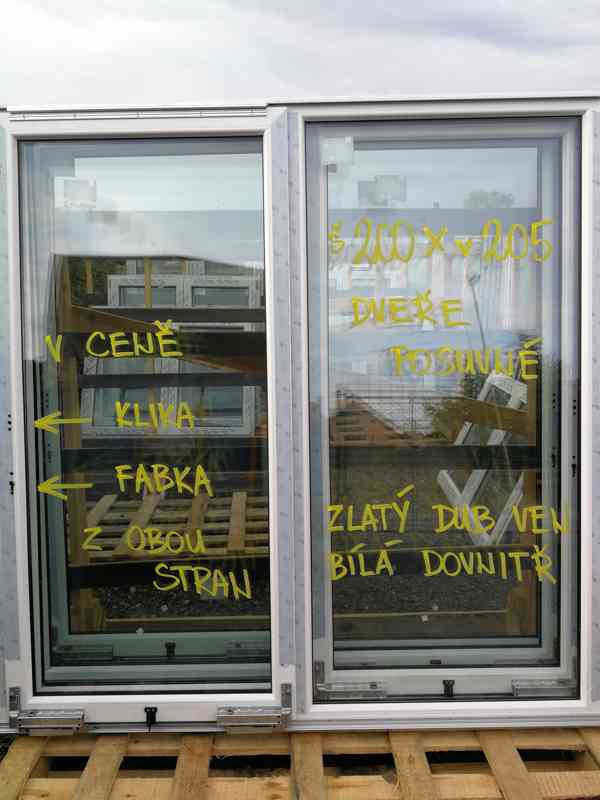 V CENĚ
KLIKA
FABKA
Z OBOU
STRAN
š 200 x v 205
DVEŘE
POSUVNÉ
ZLATÝ DUB VEN
BÍLÁ DOVNITŘ